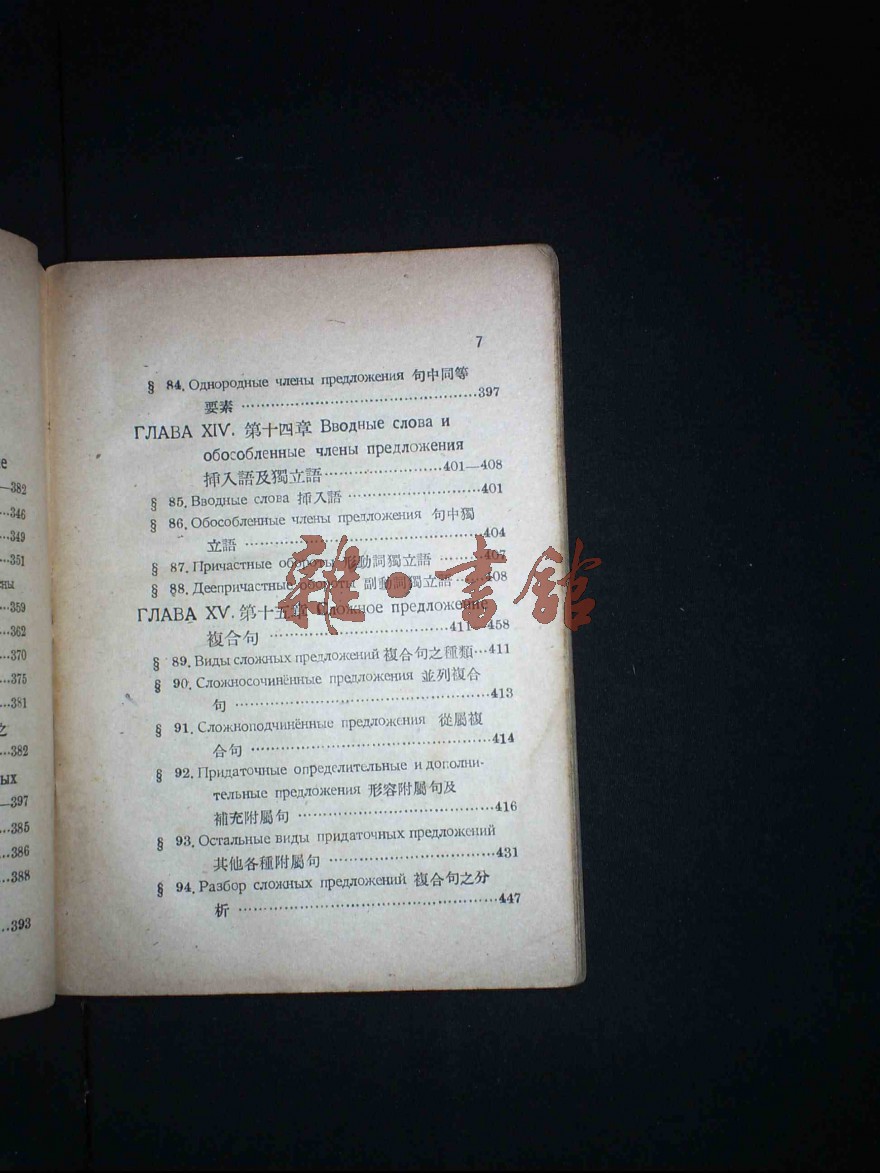 7
§ 84. Однородные члены предложения 句中同等
要素 ················································397
ГЛАВА XIV. 第十四章 Вводные слова и
обособленные члены предложения
插入語及獨立語························401—408
§ 85. Вводные слова 插入語 ···························401
§ 86. Обособленные члены предложения 句中獨
立語 ················································404
§ 87. Причастные обороты 形動詞獨立語 ··········407
§ 88. Деепричастные обороты 副動詞獨立語 ······408
ГЛАВА XV. 第十五章 Сложное предложение
複合句 ································411—458
§ 89. Виды сложных предложений 複合句之種類···411
§ 90. Сложносочинённые предложения 並列複合
句 ················································413
§ 91. Сложноподчинённые предложения 從屬複
合句 ················································414
§ 92. Придаточные определительные и дополни-
тельные предложения 形容附屬句及
補充附屬句 ····································416
§ 93. Остальные виды придаточных предложений
其他各種附屬句 ································431
§ 94. Разбор сложных предложений 複合句之分
析 ················································447
е
—382
···346
···349
···351
ны
···359
···362
···370
···375
···381
之
···382
ых
—397
···385
···386
···388
···393
雜·書館